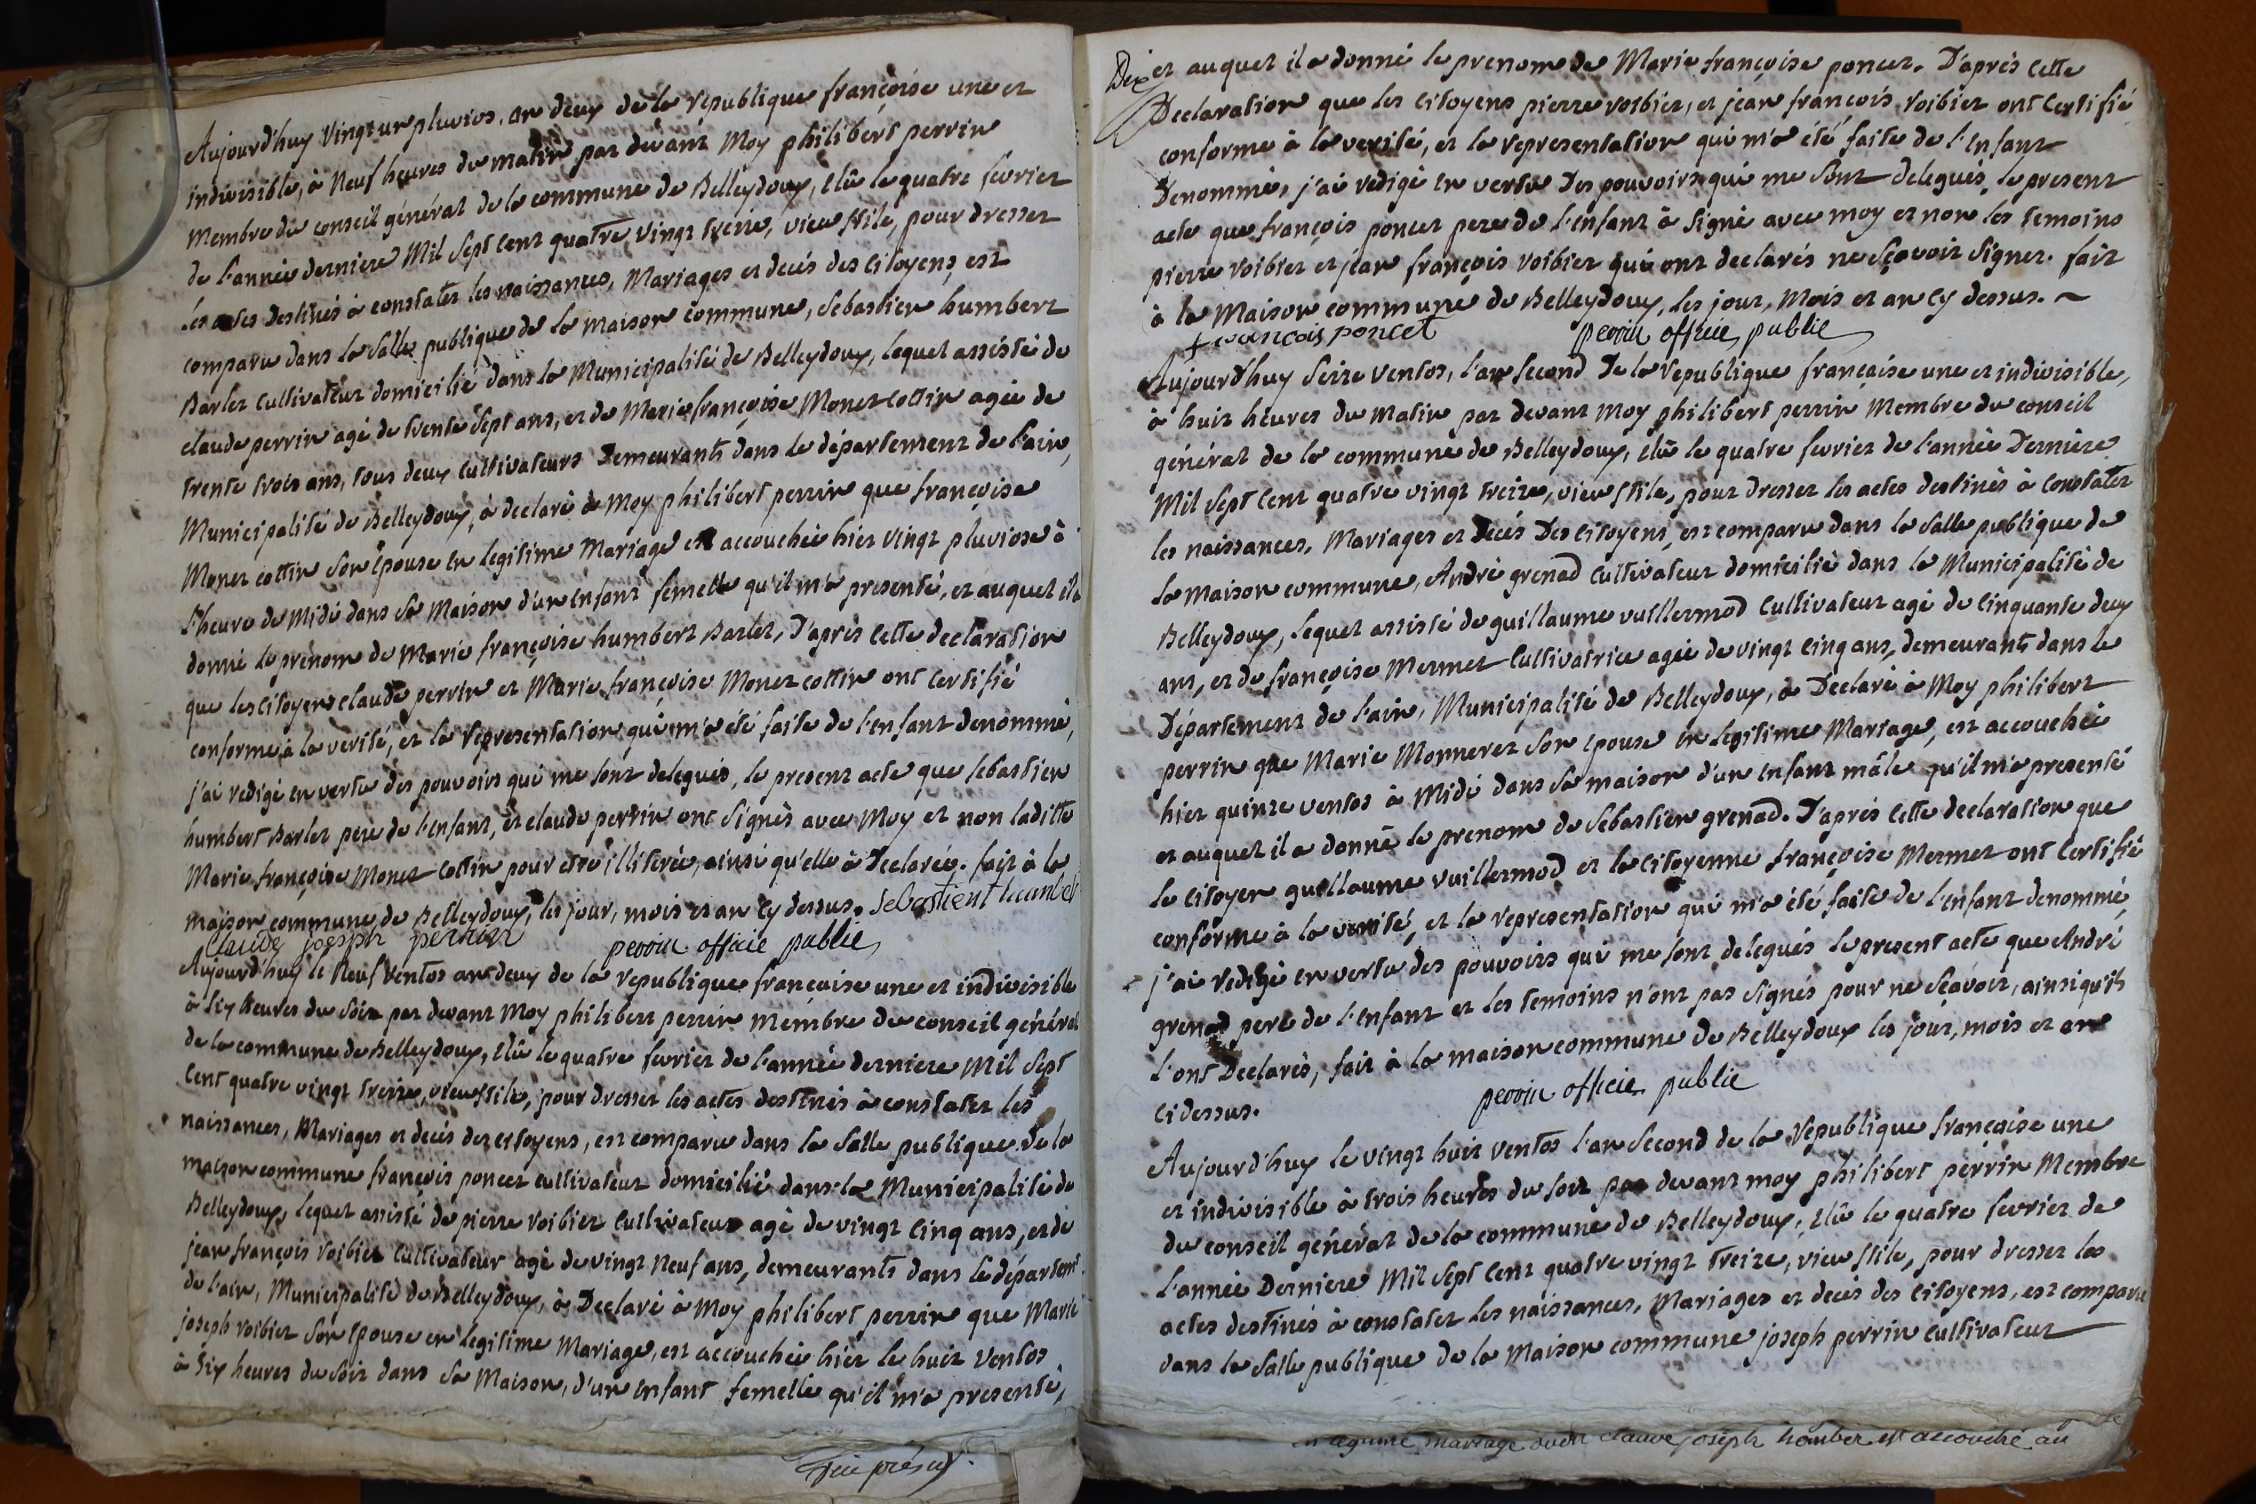 Aujourd'huy vingt un pluvios, an deux de la république françoise une et
indivisible, à neuf heures du matin par devant Moy philibert perrin
Membre du conseil général de la commune de Belleydoux, élû le quatre fevrier
de l'année derniere Mil Sept Cent quatre vingt treize, vieu stile, pour dresser
les actes destinés à constater les naissances, Mariages et decés des citoyens, est
comparu dans la Salle publique de la maison commune, Sebastien humbert
Barlet cultivateur domicilié dans la Municipalité de Belleydoux, lequel assisté de
claude perrin agé de trente Sept ans, et de Marie françoise Monet cottin agée de
trente trois ans, tous deux cultivateurs Demeurants dans le département de l'ain,
Municipalité de Belleydoux, à declaré à Moy philibert perrin que françoise
Monet cottin Son épouse en legitime Mariage est accouchée hier vingt pluviose à
l'heure de Midi dans Sa Maison d'un enfant femelle qu'il m'a presenté, et auquel il a
donné le prénom de Marie françoise humbert Barlet, D'après cette declaration
que les citoyens claude perrin et Marie françoise Monet cottin ont certifié
conforme à la verité, et la representation qui m'a été faite de l'enfant denommé,
j'ai redigé en vertu des pouvoirs qui me sont delegués, le present acte que sebastien
humbert Barlet pere de l'enfant, et claude perrin ont Signés avec Moy et non laditte
Marie françoise Monet Cottin pour etre illiterée, ainsi qu'elle à Declarée. fait à la
maison commune de Belleydoux, les jour, mois et an cy dessus. Sebastient
Claude joseph perrin perrin officie publie
Aujourd'huy le Neuf Ventos an deux de la république françoise une et indivisible
à Six heures du Soir par devant Moy philibert perrin membre du conseil général
de la commune de Belleydoux, élû le quatre fevrier de l'année derniere Mil Sept
Cent quatre vingt treize, vieu stile, pour dresser les actes destinés à constater les
naissances, Mariages et decés des citoyens, est comparu dans la Salle publique de la
maison commune françois poncet cultivateur domicilié dans la Municipalité de
Belleydoux, lequel assisté de pierre Voibier Cultivateur agé de vingt cinq ans, et de
jean françois Voibier Cultivateur agé de vingt neuf ans, demeurants dans le départemt.
de l'ain, Municipalité de Belleydoux, à Declaré à Moy philibert perrin que Marie
joseph Voibier Son épouse en legitime Mariage, est accouchée hier le huit Ventos
à Six heures du Soir dans Sa Maison, d'un enfant femelle qu'il m'a presenté,
Dix
et auquel il a donné le prenom de Marie françoise poncet. D'après cette
Declaration que les citoyens pierre Voibier, et jean françois Voibier ont certifié
conforme à la verité, et la representation qui m'a été faite de l'enfant
Denommé, j'ai redigé en vertu Des pouvoirs qui me sont delegués, le present
acte que françois poncet pere de l'enfant à Signé avec moy et non les temoins
pierre Voibier et jean françois Voibier qui ont declarés ne Sçavoir Signer. fait
à la Maison commune de Belleydoux, les jour, Mois et an cy dessus. ~
françois poncet perrin officie publie
Aujourd'huy Seize Ventos, l'an Second De la république française une et indivisible,
à huit heures du Matin par devant Moy philibert perrin Membre du conseil
général de la commune de Belleydoux, élû le quatre fevrier de l'année Derniere
Mil Sept Cent quatre vingt treize, vieu stile, pour dresser les actes destinés à constater
les naissances, Mariages et Decés Des citoyens, est comparu dans la Salle publique de
la maison commune, André grenad Cultivateur domicilié dans la Municipalité de
Belleydoux, lequel assisté de guillaume vuillermod Cultivateur agé de cinquante deux
ans, et de françoise Mermet Cultivatrice agée de vingt cinq ans, demeurants dans le
Département de l'ain, Municipalité de Belleydoux, à Declaré à Moy philibert
perrin que Marie Monneret Son épouse en legitime Mariage, est accouchée
hier quinze ventos à Midi dans Sa maison d'un enfant mâle qu'il m'a presenté
et auquel il a donné le prenom de Sebastien grenad. D'après cette declaration que
le citoyen guillaume vuillermod et la citoyenne françoise Mermet ont certifié
conforme à la verité, et la representation qui m'a été faite de l'enfant denommé,
j'ai redigé en vertu des pouvoirs qui me sont delegués le present acte que André
grenad pere de l'enfant et les temoins n'ont pas Signés pour ne Sçavoir, ainsi qu'ils
l'ont Declarés, fait à la maison commune de Belleydoux les jour, mois et an
cidessus. perrin officie publie
Aujourd'huy le vingt huit ventos l'an Second de la république française une
et indivisible à trois heures du soir par devant moy philibert perrin Membre
du conseil général de la commune de Belleydoux, élû le quatre fevrier de
l'année Derniere Mil Sept Cent quatre vingt treize, vieu stile, pour dresser les
actes destinés à constater les naissances, Mariages et decés des citoyens, est comparu
dans la Salle publique de la Maison commune joseph perrin cultivateur
legitime mariage claude joseph est accouché au